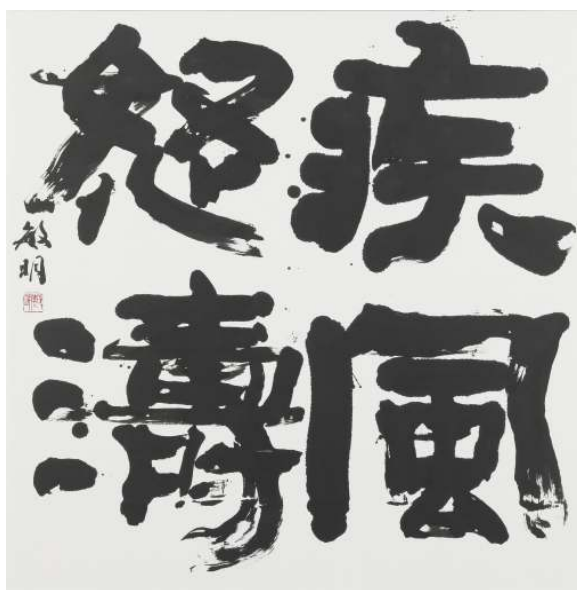 疾風
怒濤
山敏明